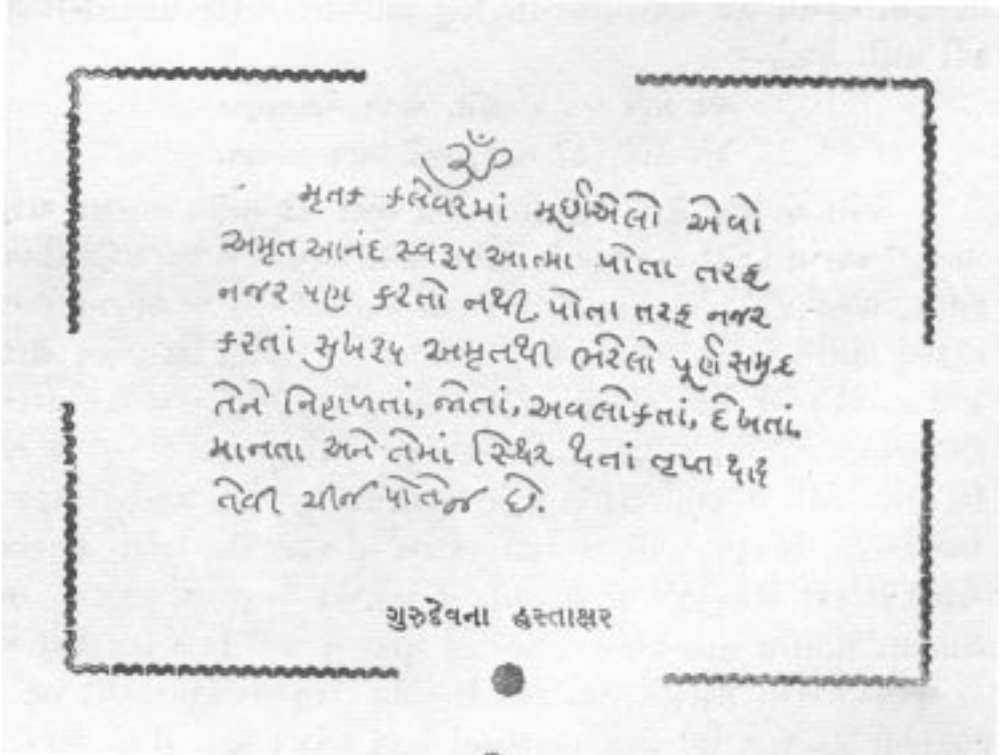 ૐ
મૃતક કલેવરમાં મૂર્છાએલો એવો
અમૃત આનંદ સ્વરૂપ આત્મા પોતા તરફ
નજર પણ કરતો નથી. પોતા તરફ નજર
કરતાં સુખરૂપ અમૃતથી ભરેલો પૂર્ણ સમુદ્ર
તેને નિહાળતાં, જોતાં, અવલોકતાં, દેખતાં,
માનતા અને તેમાં સ્થિર થતાં તૃપ્ત થાય
તેવી ચીજ પોતે જ છે.
ગુરુદેવના હસ્તાક્ષર